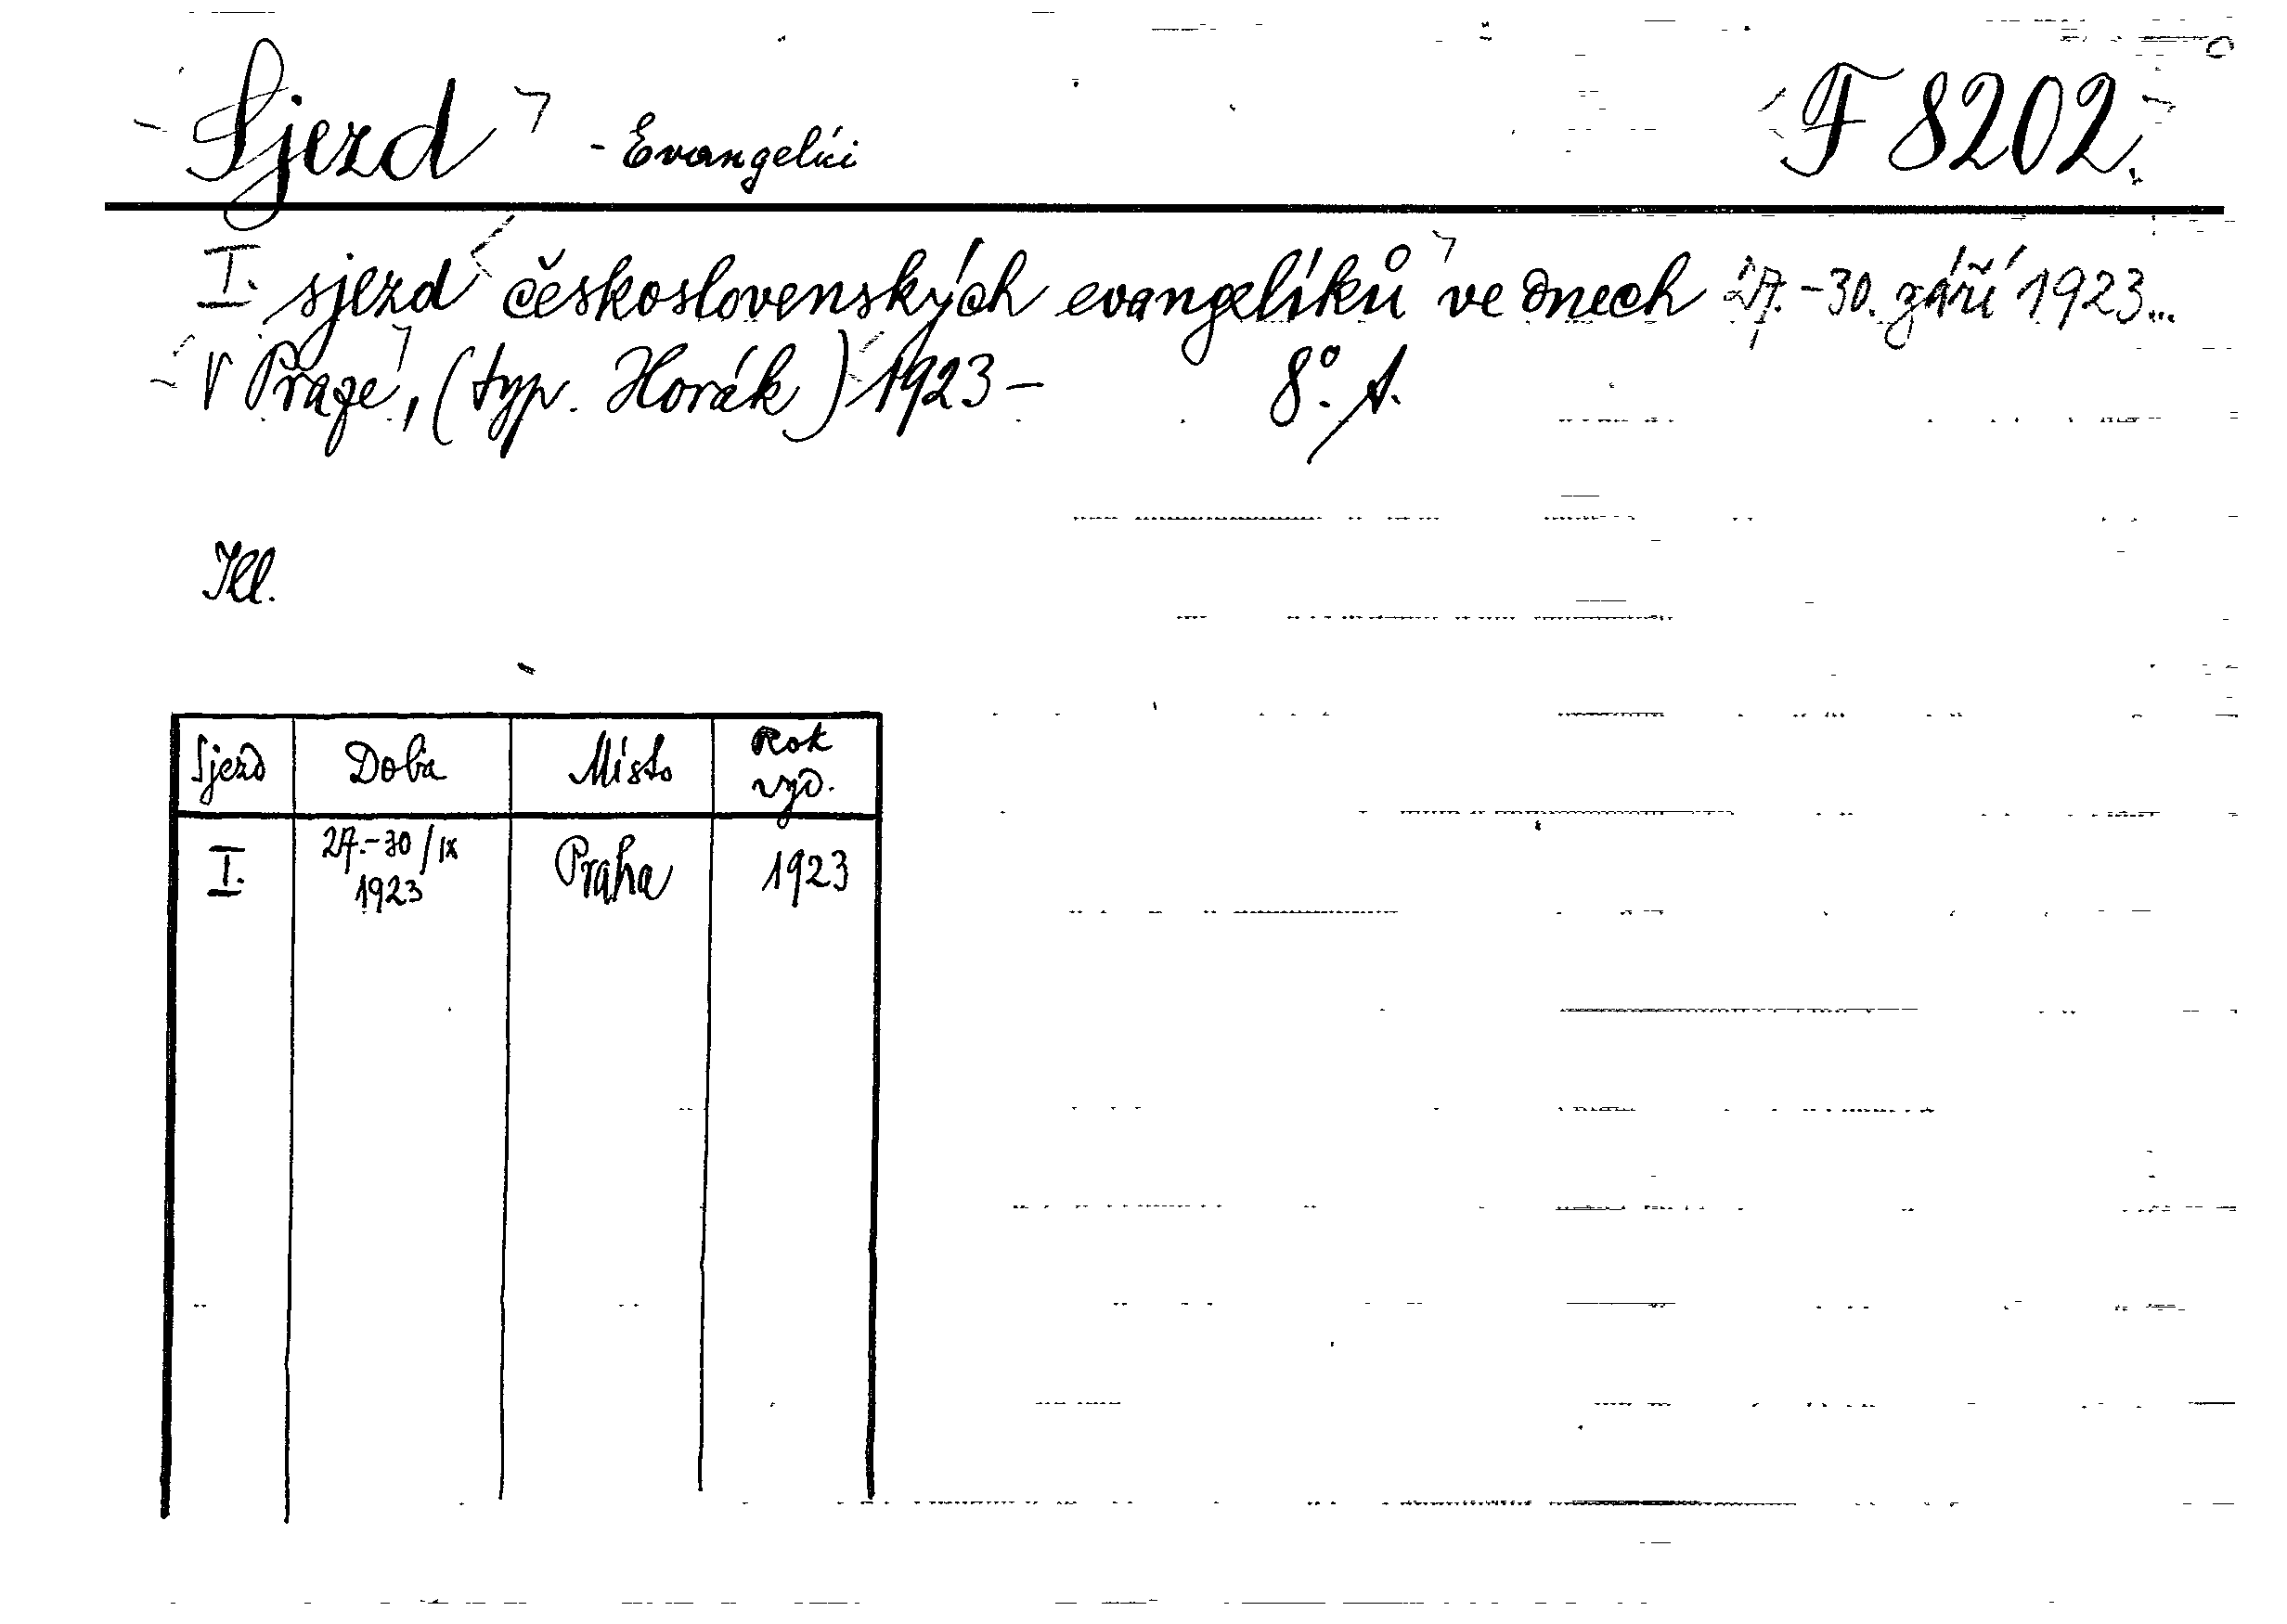 Sjezd - Evangelíci F 8202.
I. sjezd československých evangelíků ve dnech 27.-30. září 1923...
V Praze, (typ. Horák) 1923- 8°. A.
Ill.
Sjezd Doba Místo Rok vyd.
I. 27.-30/IX 1923 Praha 1923